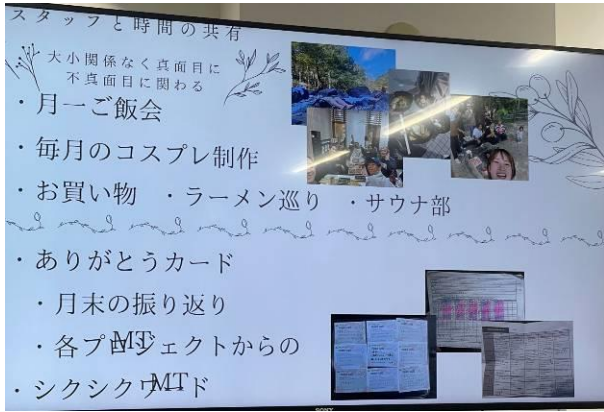 スタッフと時間の共有
大小関係なく真面目に
不真面目に関わる
・月一ご飯会
・毎月のコスプレ制作
・お買い物 ・ラーメン巡り ・サウナ部
・ありがとうカード
・月末の振り返り
MT
・各プロジェクトからの
MT
・シクシクワード
SONY